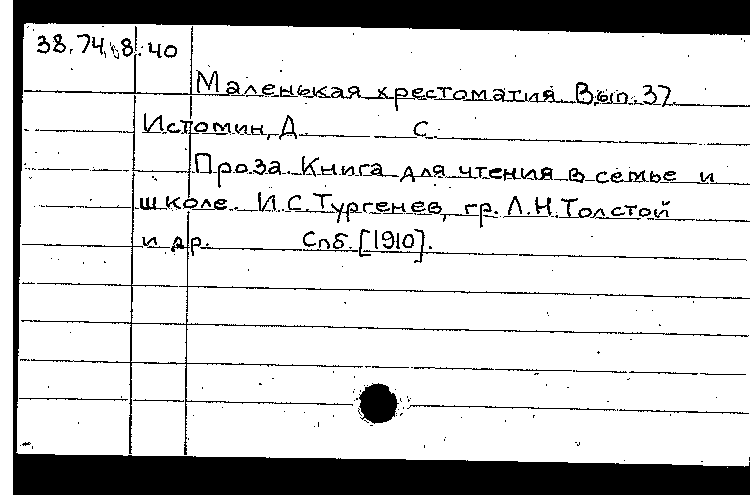 38.74.8.40
Маленькая хрестоматия Вып. 37.
Истомин, Д. С.
Проза. Книга для чтения в семье и
школе. И.С.Тургенев, гр. Л.Н.Толстой
и др. Спб. [1910].